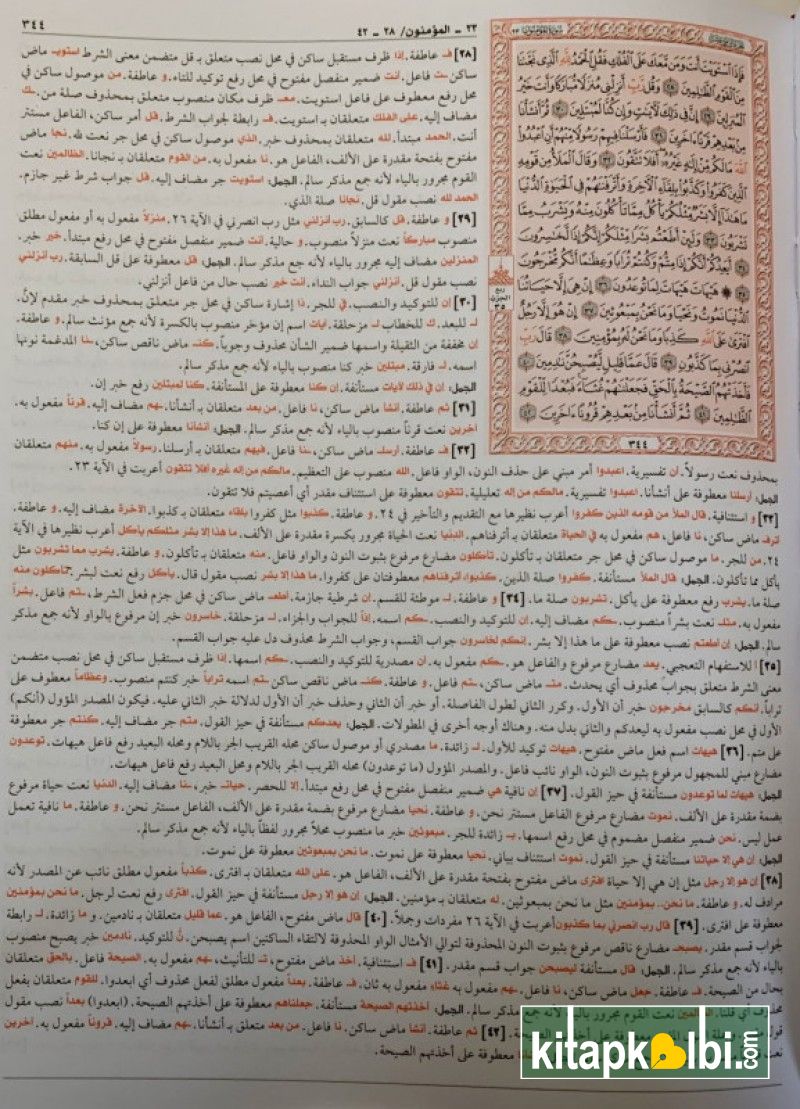 ٢٣ - المؤمنون/ ٢٨ - ٤٢
٣٤٤
فَإِذَا ٱسْتَوَيْتَ أَنتَ وَمَن مَّعَكَ عَلَى ٱلْفُلْكِ فَقُلِ ٱلْحَمْدُ لِلَّهِ ٱلَّذِى نَجَّىٰنَا
مِنَ ٱلْقَوْمِ ٱلظَّـٰلِمِينَ ٢٨ وَقُل رَّبِّ أَنزِلْنِى مُنزَلًا مُّبَارَكًا وَأَنتَ خَيْرُ
ٱلْمُنزِلِينَ ٢٩ إِنَّ فِى ذَٰلِكَ لَـَٔايَـٰتٍ وَإِن كُنَّا لَمُبْتَلِينَ ٣٠ ثُمَّ أَنشَأْنَا
مِنۢ بَعْدِهِمْ قَرْنًا ءَاخَرِينَ ٣١ فَأَرْسَلْنَا فِيهِمْ رَسُولًا مِّنْهُمْ أَنِ ٱعْبُدُوا۟
ٱللَّهَ مَا لَكُم مِّنْ إِلَـٰهٍ غَيْرُهُۥٓ أَفَلَا تَتَّقُونَ ٣٢ وَقَالَ ٱلْمَلَأُ مِن قَوْمِهِ
ٱلَّذِينَ كَفَرُوا۟ وَكَذَّبُوا۟ بِلِقَآءِ ٱلْـَٔاخِرَةِ وَأَتْرَفْنَـٰهُمْ فِى ٱلْحَيَوٰةِ ٱلدُّنْيَا
مَا هَـٰذَآ إِلَّا بَشَرٌ مِّثْلُكُمْ يَأْكُلُ مِمَّا تَأْكُلُونَ مِنْهُ وَيَشْرَبُ مِمَّا
تَشْرَبُونَ ٣٣ وَلَئِنْ أَطَعْتُم بَشَرًا مِّثْلَكُمْ إِنَّكُمْ إِذًا لَّخَـٰسِرُونَ
٣٤ أَيَعِدُكُمْ أَنَّكُمْ إِذَا مِتُّمْ وَكُنتُمْ تُرَابًا وَعِظَـٰمًا أَنَّكُم مُّخْرَجُونَ
٣٥ هَيْهَاتَ هَيْهَاتَ لِمَا تُوعَدُونَ ٣٦ إِنْ هِىَ إِلَّا حَيَاتُنَا
ٱلدُّنْيَا نَمُوتُ وَنَحْيَا وَمَا نَحْنُ بِمَبْعُوثِينَ ٣٧ إِنْ هُوَ إِلَّا رَجُلٌ
ٱفْتَرَىٰ عَلَى ٱللَّهِ كَذِبًا وَمَا نَحْنُ لَهُۥ بِمُؤْمِنِينَ ٣٨ قَالَ رَبِّ
ٱنصُرْنِى بِمَا كَذَّبُونِ ٣٩ قَالَ عَمَّا قَلِيلٍ لَّيُصْبِحُنَّ نَـٰدِمِينَ ٤٠
فَأَخَذَتْهُمُ ٱلصَّيْحَةُ بِٱلْحَقِّ فَجَعَلْنَـٰهُمْ غُثَآءً فَبُعْدًا لِّلْقَوْمِ
ٱلظَّـٰلِمِينَ ٤١ ثُمَّ أَنشَأْنَا مِنۢ بَعْدِهِمْ قُرُونًا ءَاخَرِينَ ٤٢
٣٤٤
[٢٨] فـ عاطفة. إذا ظرف مستقبل ساكن في محل نصب متعلق بـ قل متضمن معنى الشرط استويـ ماض
ساكن ـت فاعل. أنت ضمير منفصل مفتوح في محل رفع توكيد للتاء. و عاطفة. من موصول ساكن في
محل رفع معطوف على فاعل استويت. معـ ظرف مكان منصوب متعلق بمحذوف صلة من. ـك
مضاف إليه. على الفلك متعلقان بـ استويت. فـ رابطة لجواب الشرط. قل أمر ساكن، الفاعل مستتر
أنت. الحمد مبتدأ. لله متعلقان بمحذوف خبر. الذي موصول ساكن في محل جر نعت لله. نجا ماض
مفتوح بفتحة مقدرة على الألف، الفاعل هو. نا مفعول به. من القوم متعلقان بـ نجانا. الظالمين نعت
القوم مجرور بالياء لأنه جمع مذكر سالم. الجمل: استويت جر مضاف إليه. قل جواب شرط غير جازم.
الحمد لله نصب مقول قل. نجانا صلة الذي.
[٢٩] و عاطفة. قل كالسابق. رب أنزلني مثل رب انصرني في الآية ٢٦. منزلاً مفعول به أو مفعول مطلق
منصوب مباركاً نعت منزلاً منصوب. و حالية. أنت ضمير منفصل مفتوح في محل رفع مبتدأ. خير خبر.
المنزلين مضاف إليه مجرور بالياء لأنه جمع مذكر سالم. الجمل: قل معطوفة على قل السابقة. رب أنزلني
نصب مقول قل. أنزلني جواب النداء. أنت خير نصب حال من فاعل أنزلني.
[٣٠] إن للتوكيد والنصب. في للجر. ذا إشارة ساكن في محل جر متعلق بمحذوف خبر مقدم لإنَّ.
لـ للبعد. ك للخطاب لـ مزحلقة. آيات اسم إن مؤخر منصوب بالكسرة لأنه جمع مؤنث سالم. و عاطفة.
إن مخففة من الثقيلة واسمها ضمير الشأن محذوف وجوباً. كنـ ماض ناقص ساكن، ـنا المدغمة نونها
اسمه. لـ فارقة. مبتلين خبر كنا منصوب بالياء لأنه جمع مذكر سالم.
الجمل: إن في ذلك لآيات مستأنفة. إن كنا معطوفة على المستأنفة. كنا لمبتلين رفع خبر إن.
[٣١] ثم عاطفة. أنشأ ماض ساكن، نا فاعل. من بعد متعلقان بـ أنشأنا. ـهم مضاف إليه. قرناً مفعول به.
آخرين نعت قرناً منصوب بالياء لأنه جمع مذكر سالم. الجمل: أنشأنا معطوفة على إن كنا.
[٣٢] فـ عاطفة. أرسلـ ماض ساكن، ـنا فاعل. فيهم متعلقان بـ أرسلنا. رسولاً مفعول به. منهم متعلقان
بمحذوف نعت رسولاً. أن تفسيرية. اعبدوا أمر مبني على حذف النون، الواو فاعل. الله منصوب على التعظيم. مالكم من إله غيره أفلا تتقون أعربت في الآية ٢٣.
الجمل: أرسلنا معطوفة على أنشأنا. اعبدوا تفسيرية. مالكم من إله تعليلية. تتقون معطوفة على استئناف مقدر أي أعصيتم فلا تتقون.
[٣٣] و استئنافية. قال الملأ من قومه الذين كفروا أعرب نظيرها مع التقديم والتأخير في ٢٤. و عاطفة. كذبوا مثل كفروا بلقاء متعلقان بـ كذبوا. الآخرة مضاف إليه. و عاطفة.
أترف ماض ساكن، نا فاعل، هم مفعول به في الحياة متعلقان بـ أترفناهم. الدنيا نعت الحياة مجرور بكسرة مقدرة على الألف. ما هذا إلا بشر مثلكم يأكل أعرب نظيرها في الآية
٢٤. من للجر. ما موصول ساكن في محل جر متعلقان بـ تأكلون. تأكلون مضارع مرفوع بثبوت النون والواو فاعل. منه متعلقان بـ تأكلون. و عاطفة. يشرب مما تشربون مثل
يأكل مما تأكلون. الجمل: قال الملأ مستأنفة. كفروا صلة الذين. كذبوا، أترفناهم معطوفتان على كفروا. ما هذا إلا بشر نصب مقول قال. يأكل رفع نعت لبشر. تأكلون منه
صلة ما. يشرب رفع معطوفة على يأكل. تشربون صلة ما. [٣٤] و عاطفة. لـ موطئة للقسم. إن شرطية جازمة. أطعـ ماض ساكن في محل جزم فعل الشرط، ـتم فاعل. بشراً
مفعول به. مثلـ نعت بشراً منصوب. ـكم مضاف إليه. إن للتوكيد والنصب. ـكم اسمه. إذاً للجواب والجزاء. لـ مزحلقة. خاسرون خبر إن مرفوع بالواو لأنه جمع مذكر
سالم. الجمل: إن أطعتم نصب معطوفة على ما هذا إلا بشر. إنكم لخاسرون جواب القسم، وجواب الشرط محذوف دل عليه جواب القسم.
[٣٥] أ للاستفهام التعجبي. يعد مضارع مرفوع والفاعل هو. ـكم مفعول به. أن مصدرية للتوكيد والنصب. ـكم اسمها. إذا ظرف مستقبل ساكن في محل نصب متضمن
معنى الشرط متعلق بجواب محذوف أي يحدث. متـ ماض ساكن، ـتم فاعل. و عاطفة. كنـ ماض ناقص ساكن ـتم اسمه تراباً خبر كنتم منصوب. وعظاماً معطوف على
تراباً. أنكم كالسابق مخرجون خبر أن الأول. وكرر الثاني لطول الفاصلة. أو خبر أن الثاني وحذف خبر أن الأول لدلالة خبر الثاني عليه. فيكون المصدر المؤول (أنكم)
الأول في محل نصب مفعول به ليعدكم والثاني بدل منه. وهناك أوجه أخرى في المطولات. الجمل: يعدكم مستأنفة في حيز القول. متم جر مضاف إليه. كنتم جر معطوفة
على متم. [٣٦] هيهات اسم فعل ماض مفتوح. هيهات توكيد للأول. لـ زائدة. ما مصدري أو موصول ساكن محله القريب الجر باللام ومحله البعيد رفع فاعل هيهات. توعدون
مضارع مبني للمجهول مرفوع بثبوت النون، الواو نائب فاعل. والمصدر المؤول (ما توعدون) محله القريب الجر باللام ومحله البعيد رفع فاعل هيهات.
الجمل: هيهات لما توعدون مستأنفة في حيز القول. [٣٧] إن نافية هي ضمير منفصل مفتوح في محل رفع مبتدأ. إلا للحصر. حياتـ خبر، ـنا مضاف إليه. الدنيا نعت حياة مرفوع
بضمة مقدرة على الألف. نموت مضارع مرفوع الفاعل مستتر نحن. و عاطفة. نحيا مضارع مرفوع بضمة مقدرة على الألف، الفاعل مستتر نحن. و عاطفة. ما نافية تعمل
عمل ليس. نحن ضمير منفصل مضموم في محل رفع اسمها. بـ زائدة للجر. مبعوثين خبر ما منصوب محلاً مجرور لفظاً بالياء لأنه جمع مذكر سالم.
الجمل: إن هي إلا حياتنا مستأنفة في حيز القول. نموت استئناف بياني. نحيا معطوفة على نموت. ما نحن بمبعوثين معطوفة على نموت.
[٣٨] إن هو إلا رجل مثل إن هي إلا حياة افترى ماض مفتوح بفتحة مقدرة على الألف، الفاعل هو. على الله متعلقان بـ افترى. كذباً مفعول مطلق نائب عن المصدر لأنه
مرادف له. و عاطفة. ما نحن.. بمؤمنين مثل ما نحن بمبعوثين. له متعلقان بـ مؤمنين. الجمل: إن هو إلا رجل مستأنفة في حيز القول. افترى رفع نعت لرجل. ما نحن بمؤمنين
معطوفة على افترى. [٣٩] قال رب انصرني بما كذبون أعربت في الآية ٢٦ مفردات وجملاً. [٤٠] قال ماض مفتوح، الفاعل هو. عما قليل متعلقان بـ نادمين. و ما زائدة. لـ رابطة
لجواب قسم مقدر. يصبحـ مضارع ناقص مرفوع بثبوت النون المحذوفة لتوالي الأمثال الواو المحذوفة لالتقاء الساكنين اسم يصبحن. نّ للتوكيد. نادمين خبر يصبح منصوب
بالياء لأنه جمع مذكر سالم. الجمل: قال مستأنفة ليصبحن جواب قسم مقدر. [٤١] فـ استئنافية. أخذ ماض مفتوح، تـ للتأنيث، ـهم مفعول به. الصيحة فاعل. بالحق متعلقان
بحال من الصيحة. فـ عاطفة. جعل ماض ساكن، نا فاعل. ـهم مفعول به غثاء مفعول به ثان. فـ عاطفة. بعداً مفعول مطلق لفعل محذوف أي ابعدوا. للقوم متعلقان بفعل
محذوف أي قلنا. الظالمين نعت القوم مجرور بالياء لأنه جمع مذكر سالم. الجمل: أخذتهم الصيحة مستأنفة. جعلناهم معطوفة على أخذتهم الصيحة. (ابعدوا) بعداً نصب مقول
على أخذتهم الصيحة. [٤٢] ثم عاطفة. أنشأ ماض ساكن. نا فاعل. من بعد متعلق بـ أنشأنا. ـهم مضاف إليه. قروناً مفعول به. آخرين
معطوفة على أخذتهم الصيحة.
ربع
الحزب
٣٥
kitapkalbi.com